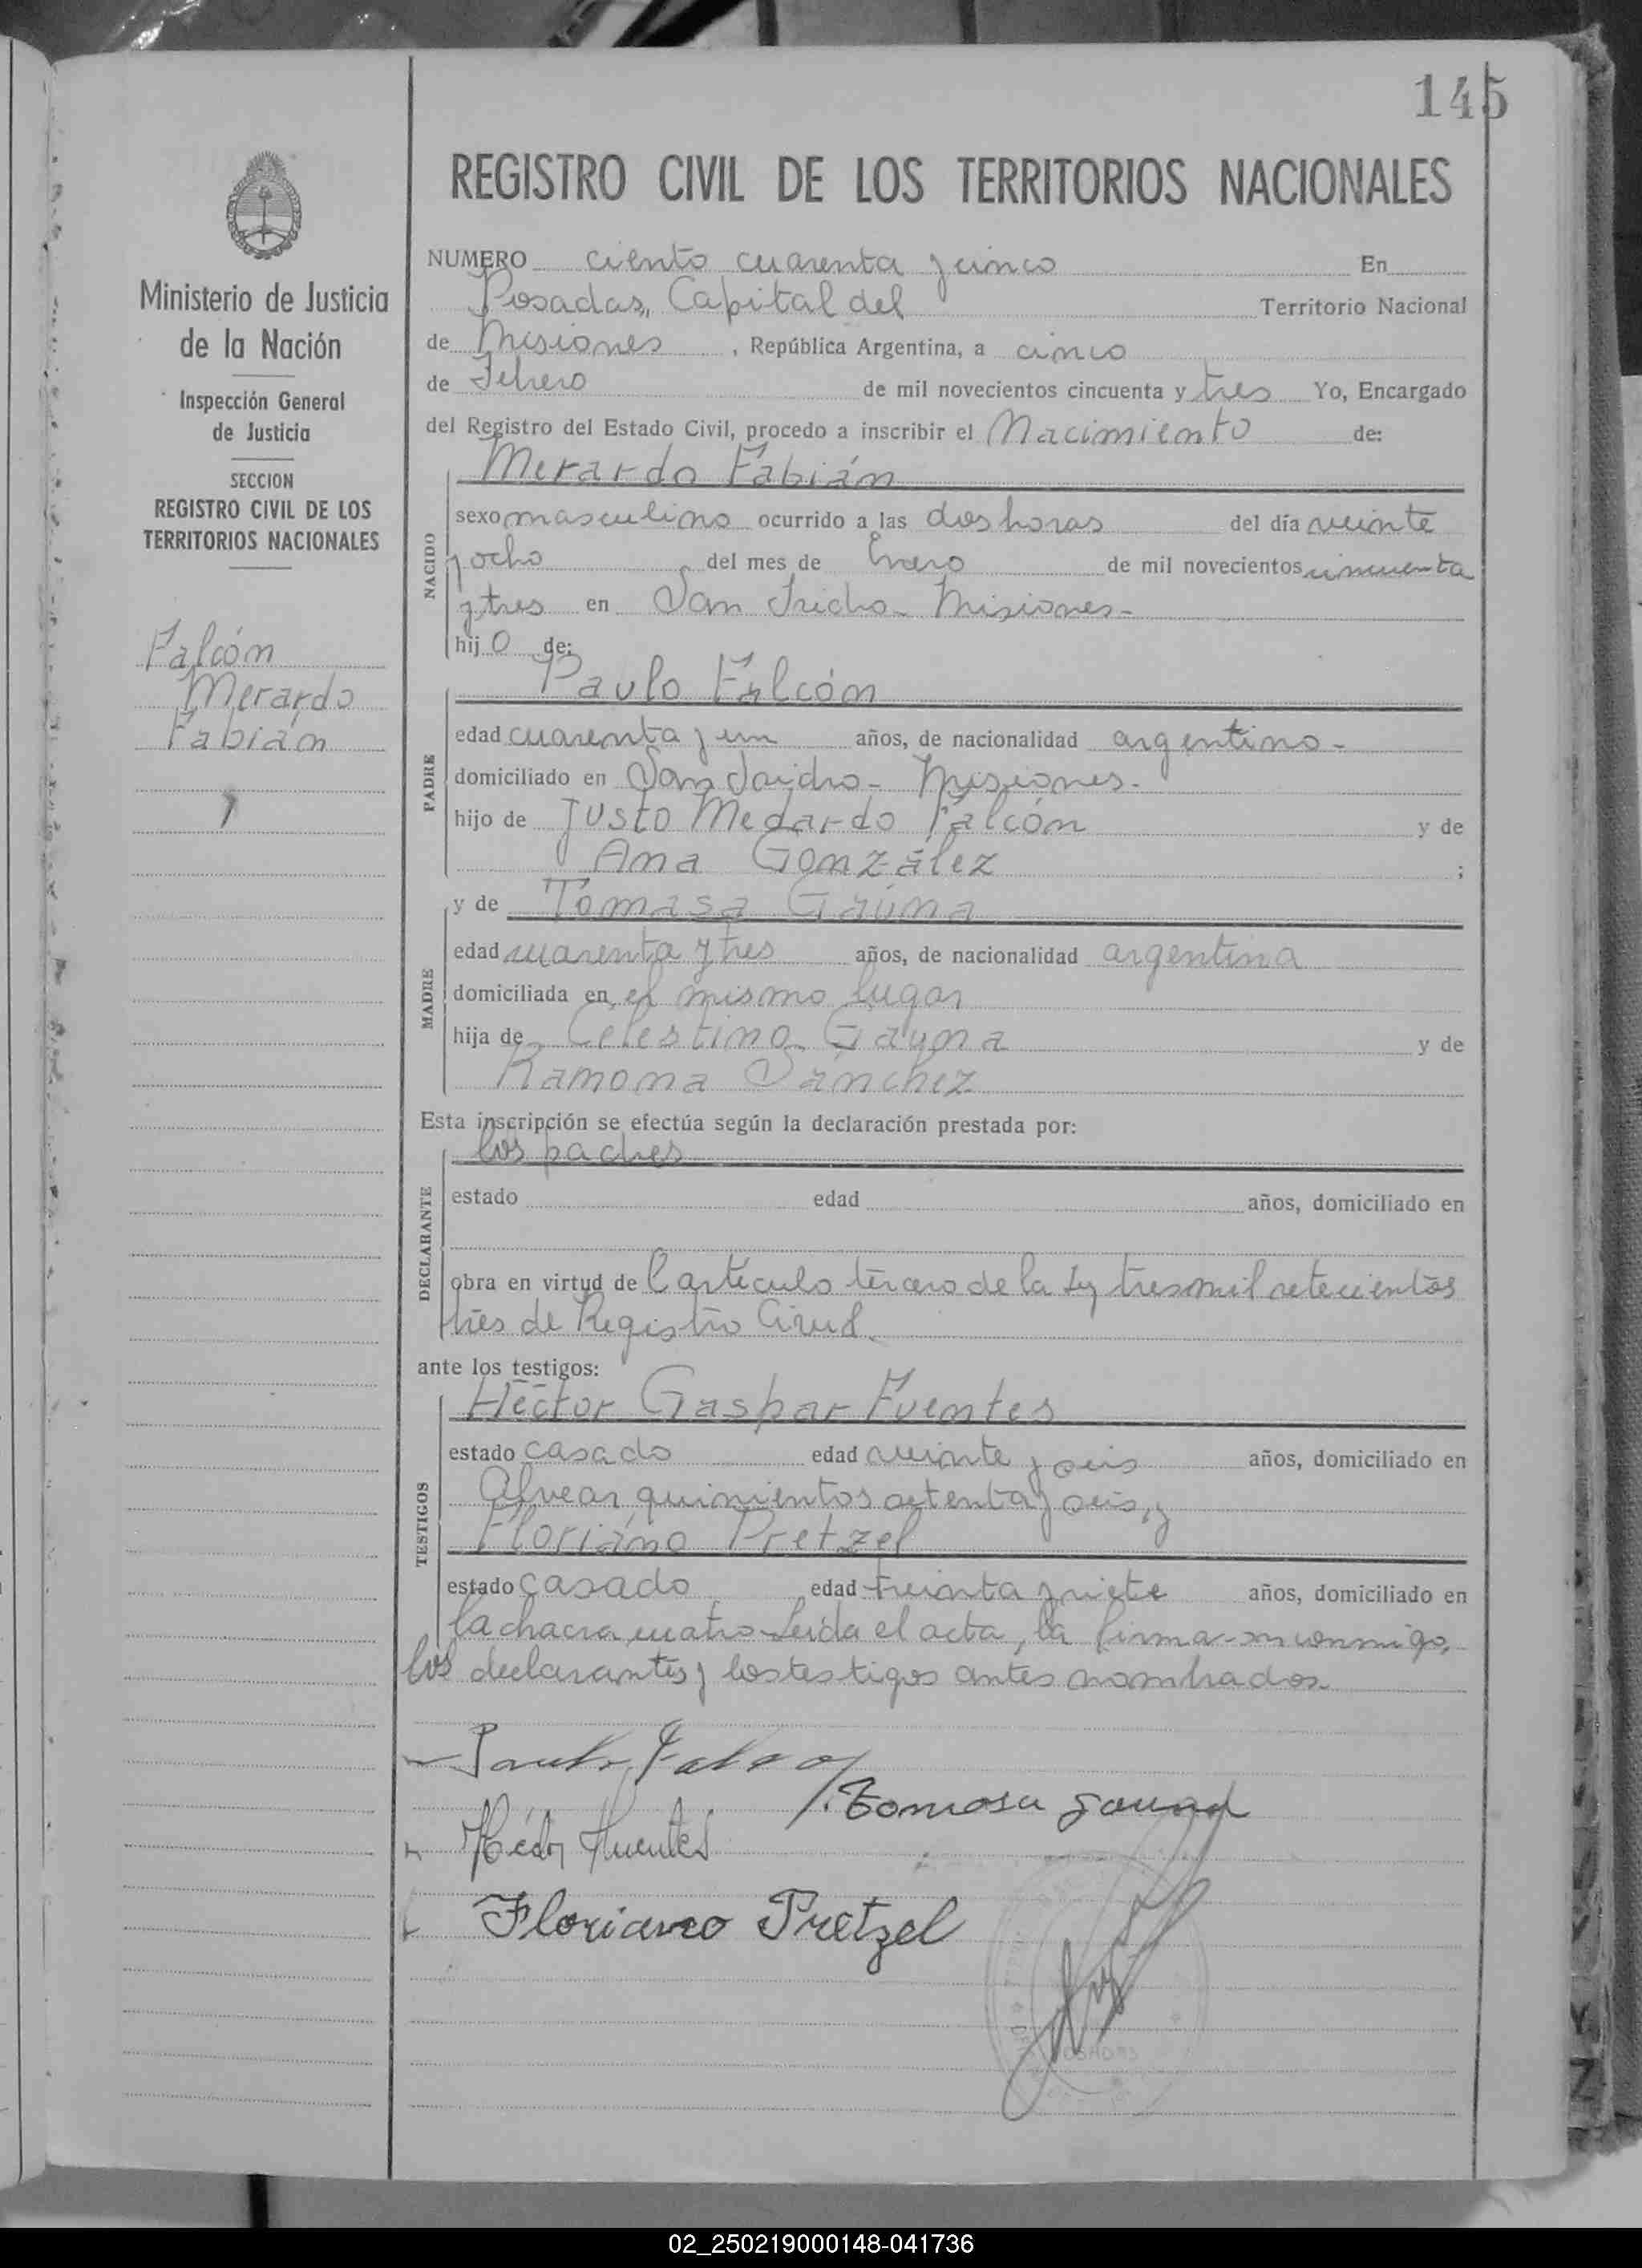 145
REGISTRO CIVIL DE LOS TERRITORIOS NACIONALES
Ministerio de Justicia
de la Nación
Inspección General
de Justicia
SECCION
REGISTRO CIVIL DE LOS
TERRITORIOS NACIONALES
Falcón
Merardo
Fabián
NUMERO ciento cuarenta y cinco En
Posadas, Capital del Territorio Nacional
de Misiones, República Argentina, a cinco
de Febrero de mil novecientos cincuenta y tres Yo, Encargado
del Registro del Estado Civil, procedo a inscribir el Nacimiento de:
Merardo Fabián
NACIDO
sexo masculino ocurrido a las dos horas del día veinte
y ocho del mes de Enero de mil novecientos cincuenta
y tres en San Isidro - Misiones -
hijo de:
Paulo Falcón
PADRE
edad cuarenta y un años, de nacionalidad argentino -
domiciliado en San Isidro - Misiones -
hijo de Justo Medardo Falcón y de
Ana González ;
MADRE
y de Tomasa Gauna
edad cuarenta y tres años, de nacionalidad argentina
domiciliada en el mismo lugar
hija de Celestino Gauna y de
Ramona Sánchez
Esta inscripción se efectúa según la declaración prestada por:
los padres
DECLARANTE
estado edad años, domiciliado en
obra en virtud del artículo tercero de la Ley tres mil setecientos
tres de Registro Civil
ante los testigos:
Héctor Gaspar Fuentes
TESTIGOS
estado casado edad veinte y seis años, domiciliado en
Alvear quinientos setenta y seis, y
Floriano Pretzel
estado casado edad treinta y siete años, domiciliado en
la chacra cuatro - Leída el acta, la firman conmigo,
los declarantes y los testigos antes nombrados.
Paulo Falcon
Tomasa gauna
Héctor Fuentes
Floriano Pretzel
POSADAS
02_250219000148-041736